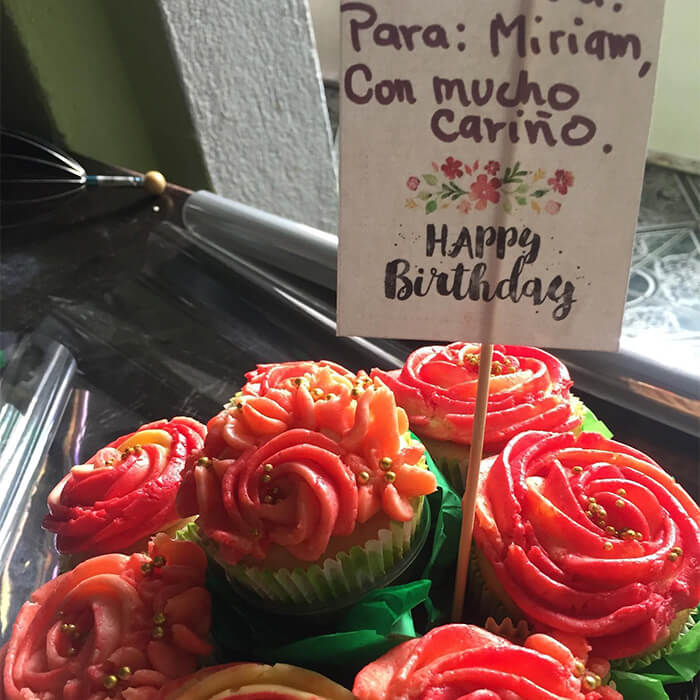 Para: Miriam,
Con mucho
cariño.
HAPPY
Birthday